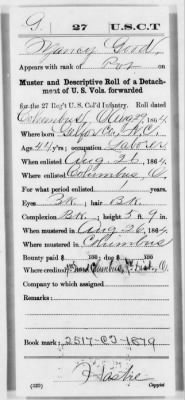 G. 27 U.S.C.T
Yancy Good
Appears with rank of Pvt on
Muster and Descriptive Roll of a Detach-
ment of U. S. Vols. forwarded
for the 27 Reg't U. S. Col'd Infantry. Roll dated
Columbus, O Aug 29, 1864
Where born Co., N.C.
Age 44 y'rs; occupation Laborer
When enlisted Aug. 26, 1864.
Where enlisted Columbus, O.
For what period enlisted 1 years.
Eyes Bk.; hair Bk.
Complexion Bk.; height 5 ft. 9 in.
When mustered in Aug 26, 1864.
Where mustered in Columbus
Bounty paid $ 100; due $ 100
Where credited Columbus, O.
Company to which assigned
Remarks:
Book mark: 2517-C3-1879
(339) Copyist